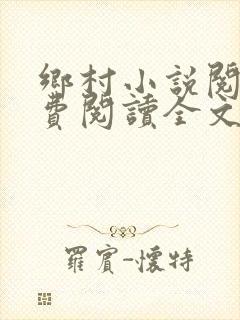 鄉村小說閱
費閱讀全文
羅賓-懷特